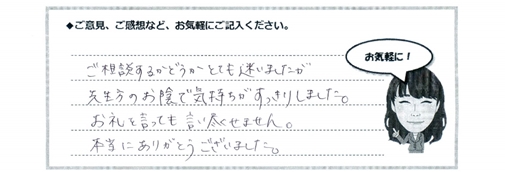 ◆ご意見、ご感想など、お気軽にご記入ください。
お気軽に!
ご相談するかどうかとても迷いましたが
先生方のお陰で気持ちがすっきりしました。
お礼を言っても言い尽くせません。
本当にありがとうございました。